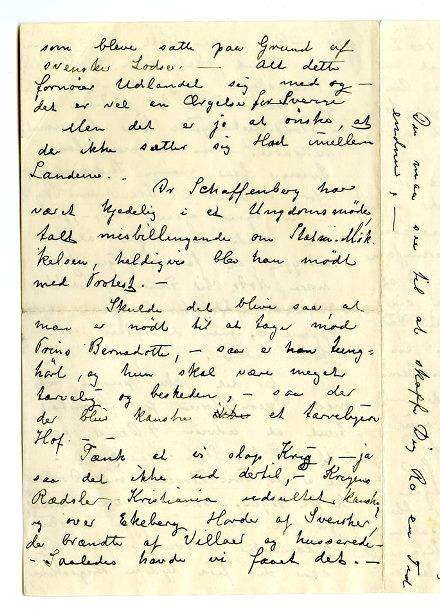 som bleve satte paa Grund af
svenske Lodser. — Alt dette
fornøier Udlandet sig med og —
det er vel en Ærgelse for Sverrig
Men det er jo at ønske, at
der ikke sætter sig Had imellem
Landene. — Dr Scharffenberg har
været kjedelig i et Ungdomsmøde
talt misbilligende om Statsm. Mik-
kelsen, heldigvis blev han mødt
med Protest. —
Skulde det blive saa, at
man er nødt til at tage mod
Prins Bernadotte, — saa er han tung-
hørt, og hun skal være meget
tarvelig og beskeden, — saa der
der blir kanske et tarveligere
Hof. —
Tænk at vi slap Krig, — ja
saa det ikke ud dertil, — Krigens
Rædsler, Kristiania udsultet kanske,
og over Ekeberg Horder af Svensker,
de brændte af Villaer og husserede —
— Saaledes havde vi faaet det. —
Du maa se til at skaffe Dig Ro en Tid
endnu, —